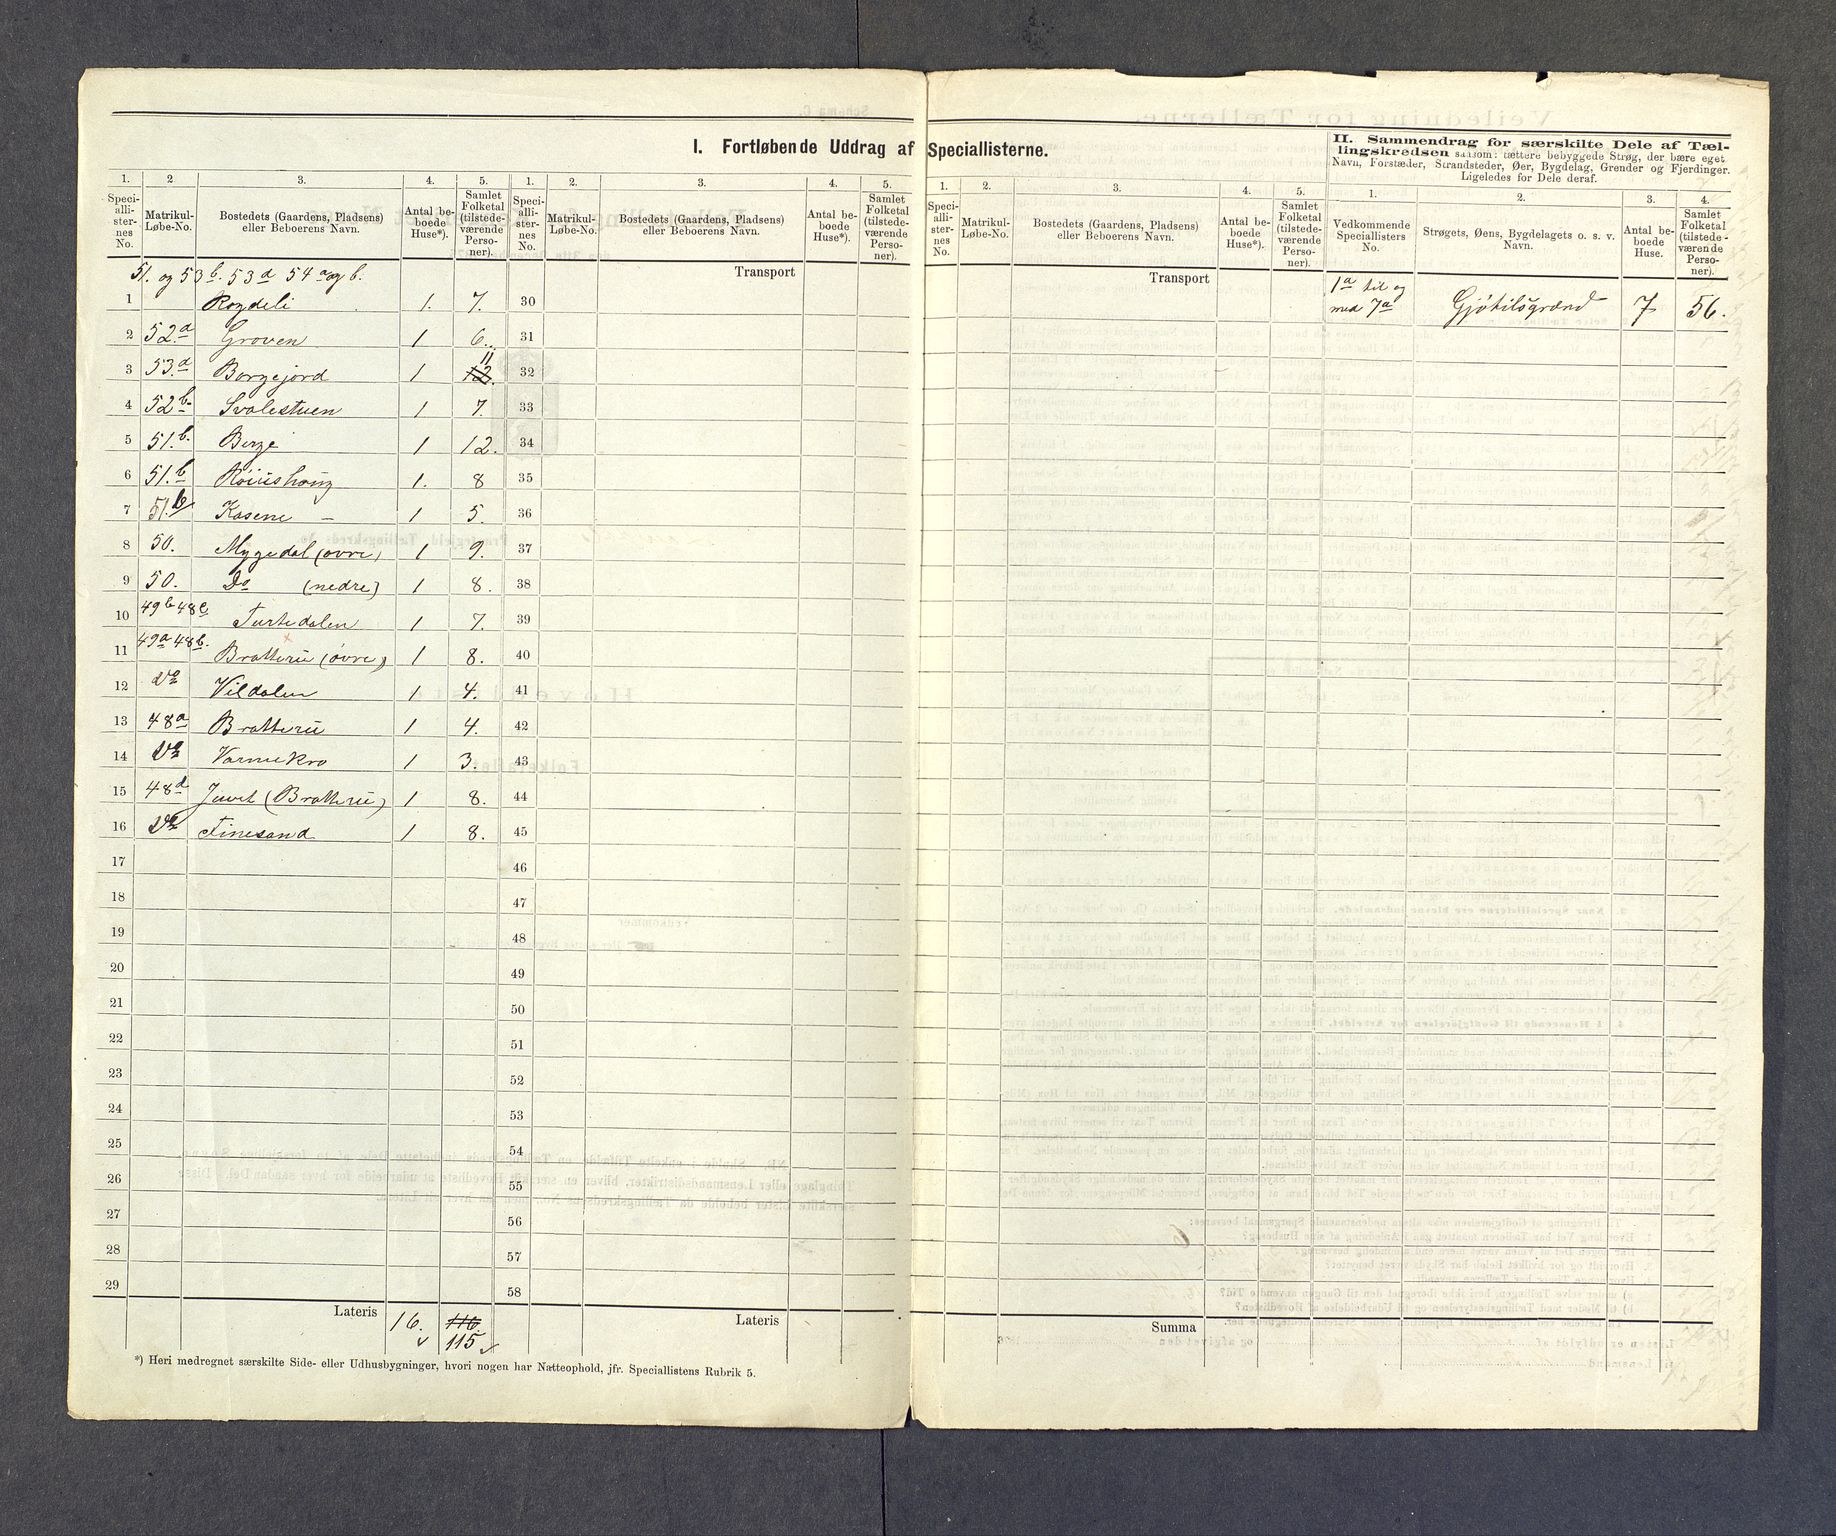 I. Fortløbende Uddrag af Speciallisterne.
II. Sammendrag for særskilte Dele af Tæl-
lingskredsen saasom: tættere bebyggede Strøg, der bære eget
Navn, Forstæder, Strandsteder, Øer, Bygdelag, Grender og Fjerdinger.
Ligeledes for Dele deraf.
1. 2 3. 4. 5. 1. 2. 3. 4. 5. 1. 2. 3. 4. 5. 1. 2. 3. 4.
Speci-alli-ster-nes No. Matrikul-Løbe-No. Bostedets (Gaardens, Pladsens) eller Beboerens Navn. Antal be-boede Huse*). Samlet Folketal (tilstede-værende Perso-ner).
Speci-alli-ster-nes No. Matrikul-Løbe-No. Bostedets (Gaardens, Pladsens) eller Beboerens Navn. Antal be-boede Huse*). Samlet Folketal (tilstede-værende Perso-ner).
Speci-alli-ster-nes No. Matrikul-Løbe-No. Bostedets (Gaardens, Pladsens) eller Beboerens Navn. Antal be-boede Huse*). Samlet Folketal (tilstede-værende Perso-ner).
Vedkommende Speciallisters No. Strøgets, Øens, Bygdelagets o. s. v. Navn. Antal be-boede Huse. Samlet Folketal (tilstede-værende Perso-ner).
Transport Transport
51. og 53b. 53d 54a og b.
1 Rogdeli 1. 7. 30
1a til og med 7a Gjøtilsgrænd 7 56.
2 52.a Groven 1 6. 31
3 53.a Borgejord 1 12. 11 32
4 52b. Svalestuen 1 7. 33
5 51.b. Berge 1 12. 34
6 51.b 1. 8 35
7 51.b Kasene – 1 5. 36
8 50. Mygedal (øvre) 1 9. 37
9 50. Do (nedre) 1 8. 38
10 49b 48c Turtedalen 1 7. 39
11 49a 48b. Bratterü (øvre) 1 8. 40
12 Do Vildalen 1 4. 41
13 48a Bratterü 1 4. 42
14 Do Varmekro 1 3. 43
15 48d Juvet (Bratterü) 1 8. 44
16 Do Finesand 1 8. 45
17 46
18 47
19 48
20 49
21 50
22 51
23 52
24 53
25 54
26 55
27 56
28 57
29 58
Lateris 16. 116. Lateris Summa
115
*) Heri medregnet særskilte Side- eller Udhusbygninger, hvori nogen har Natteophold, jfr. Speciallistens Rubrik 5.